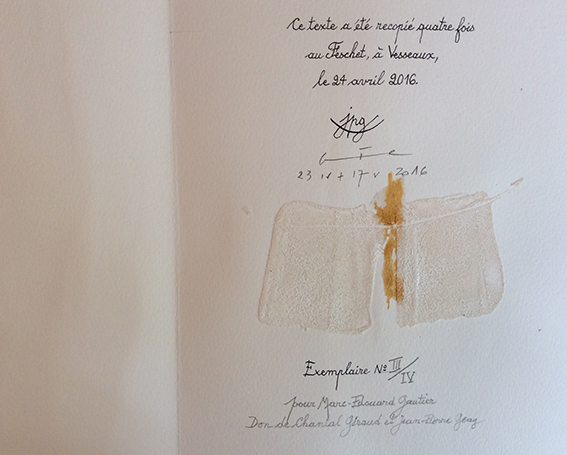 Ce texte a été recopié quatre fois
au Feschet, à Vesseaux,
le 24 avril 2016.
jpg
23 IV + 17 V 2016
Exemplaire Nº III/IV
pour Marc-Edouard Gautier
Don de Chantal Giraud et Jean-Pierre Geay